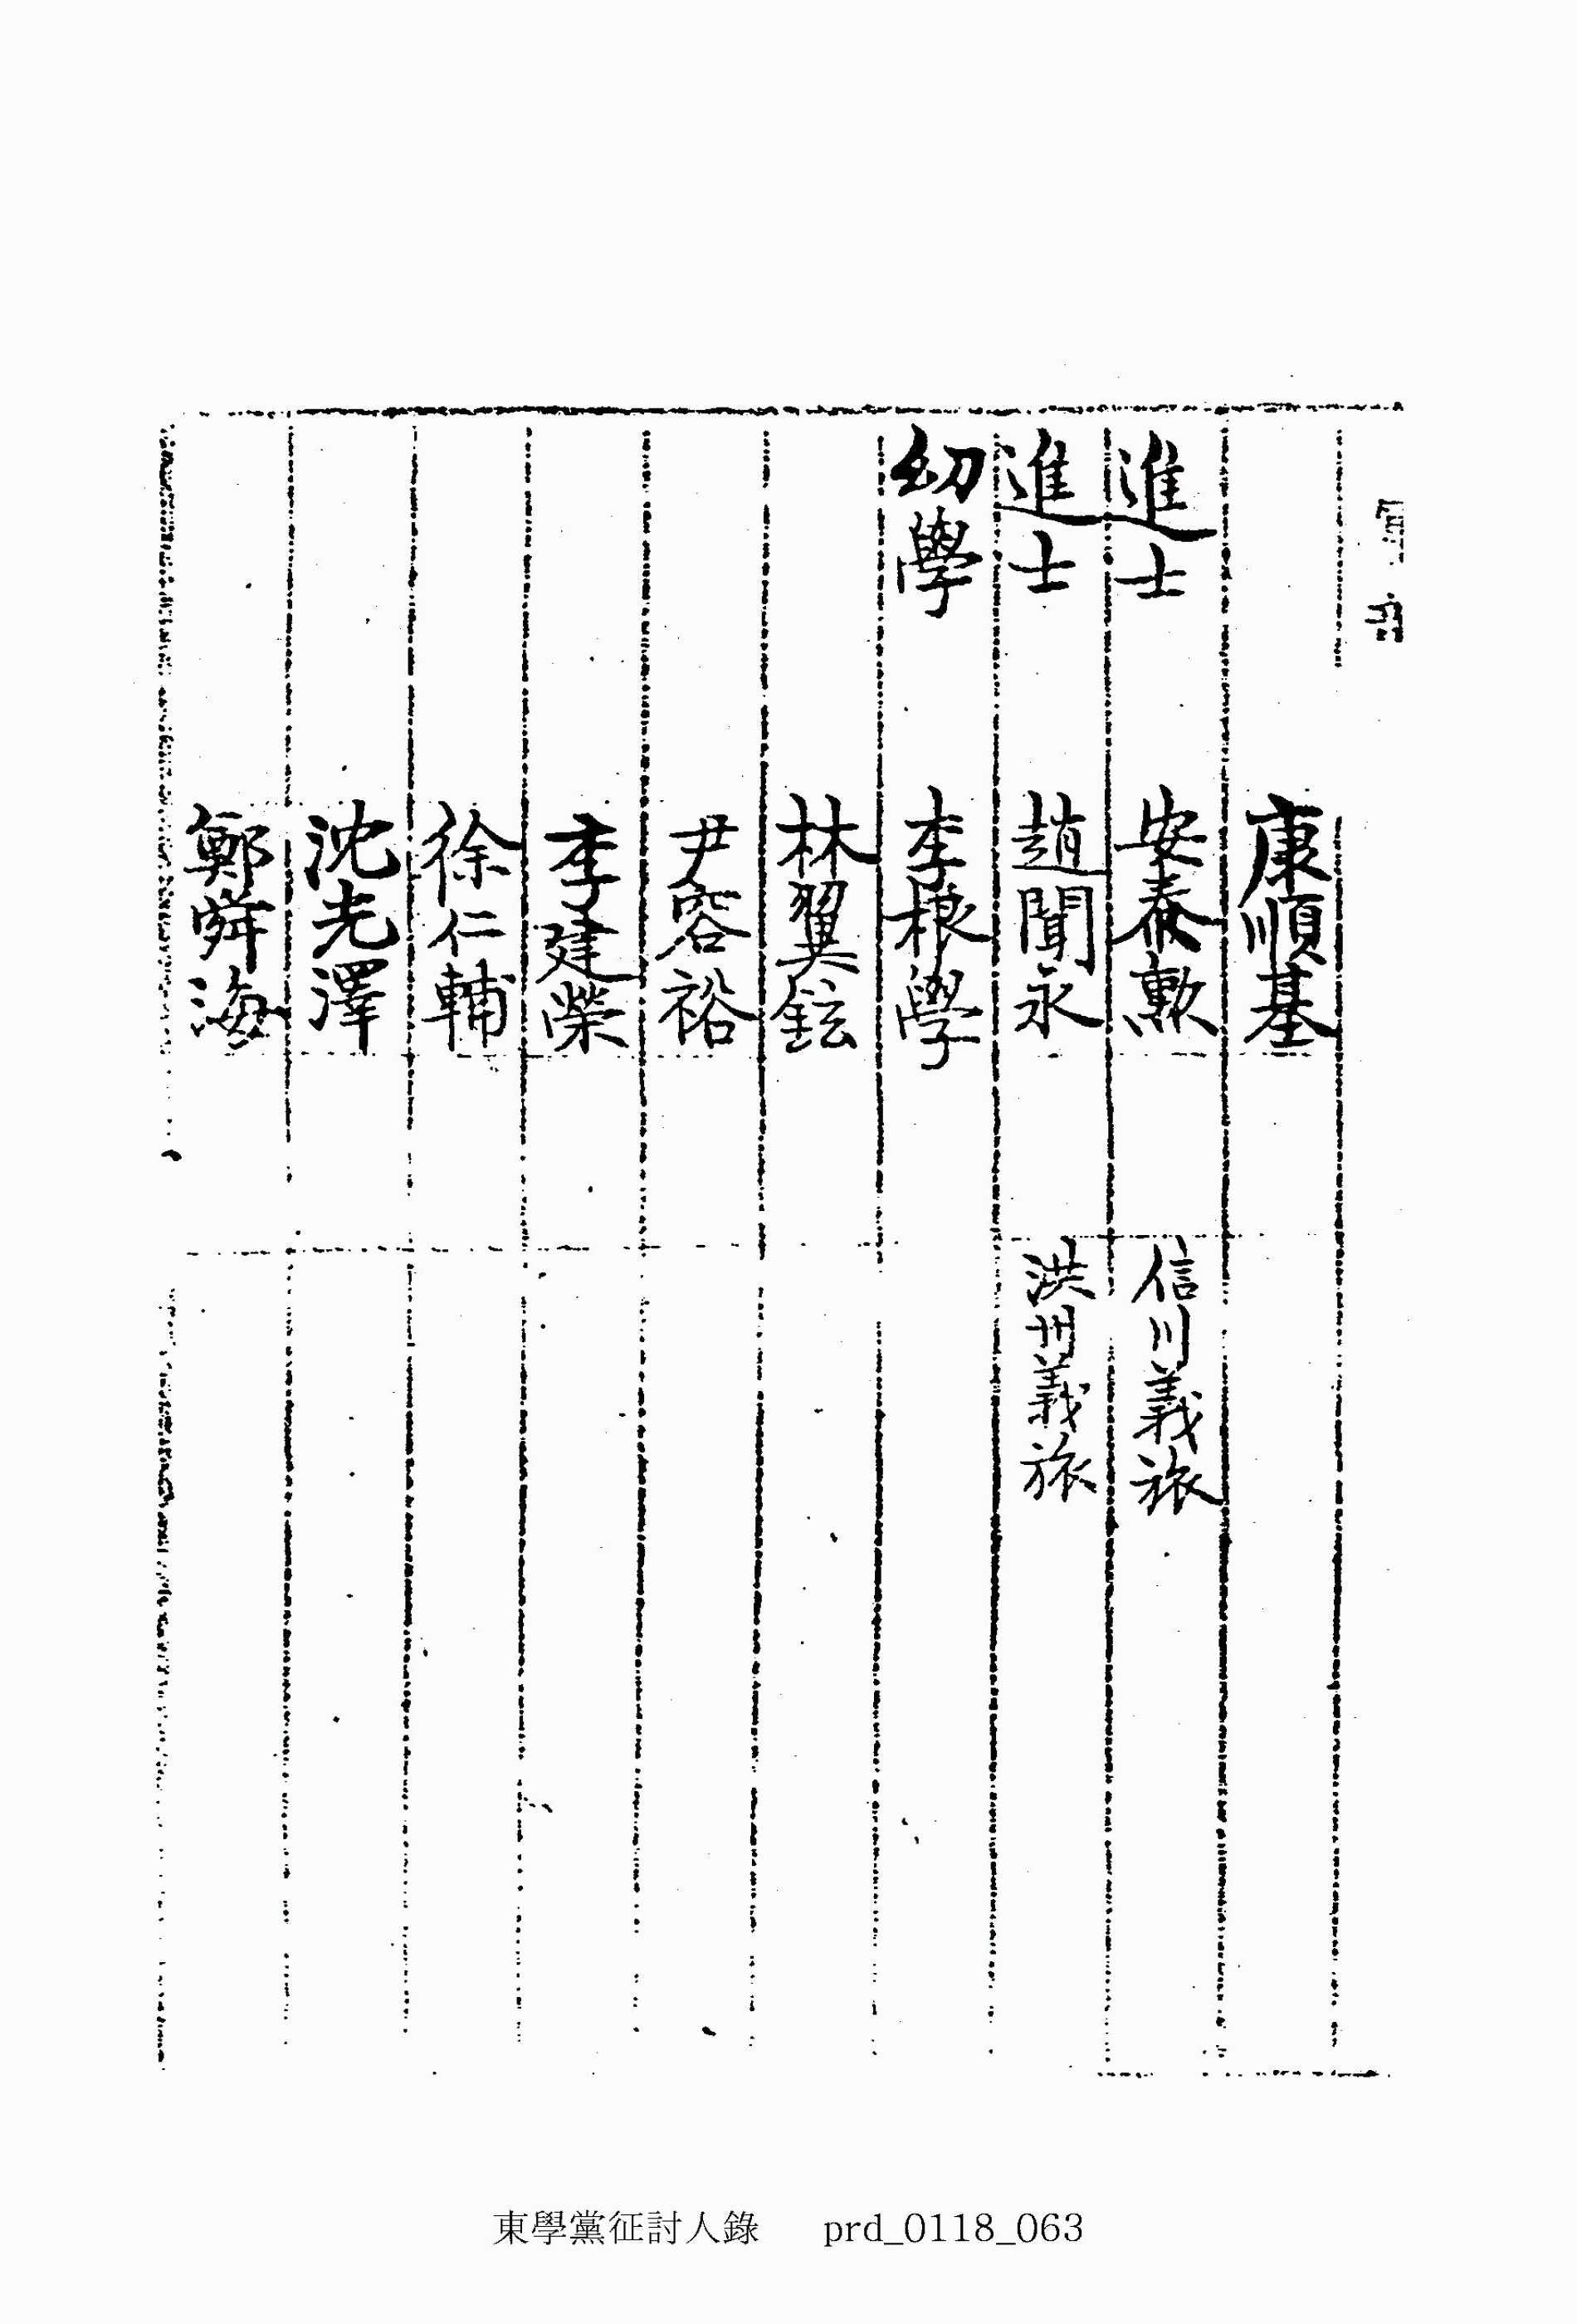 康順基
進士 安泰勲 信川義旅
進士 趙聞永 洪州義旅
幼學 李根學
林翼鉉
尹容裕
李建榮
徐仁輔
沈光澤
鄭舜海
東學黨征討人錄 prd_0118_063